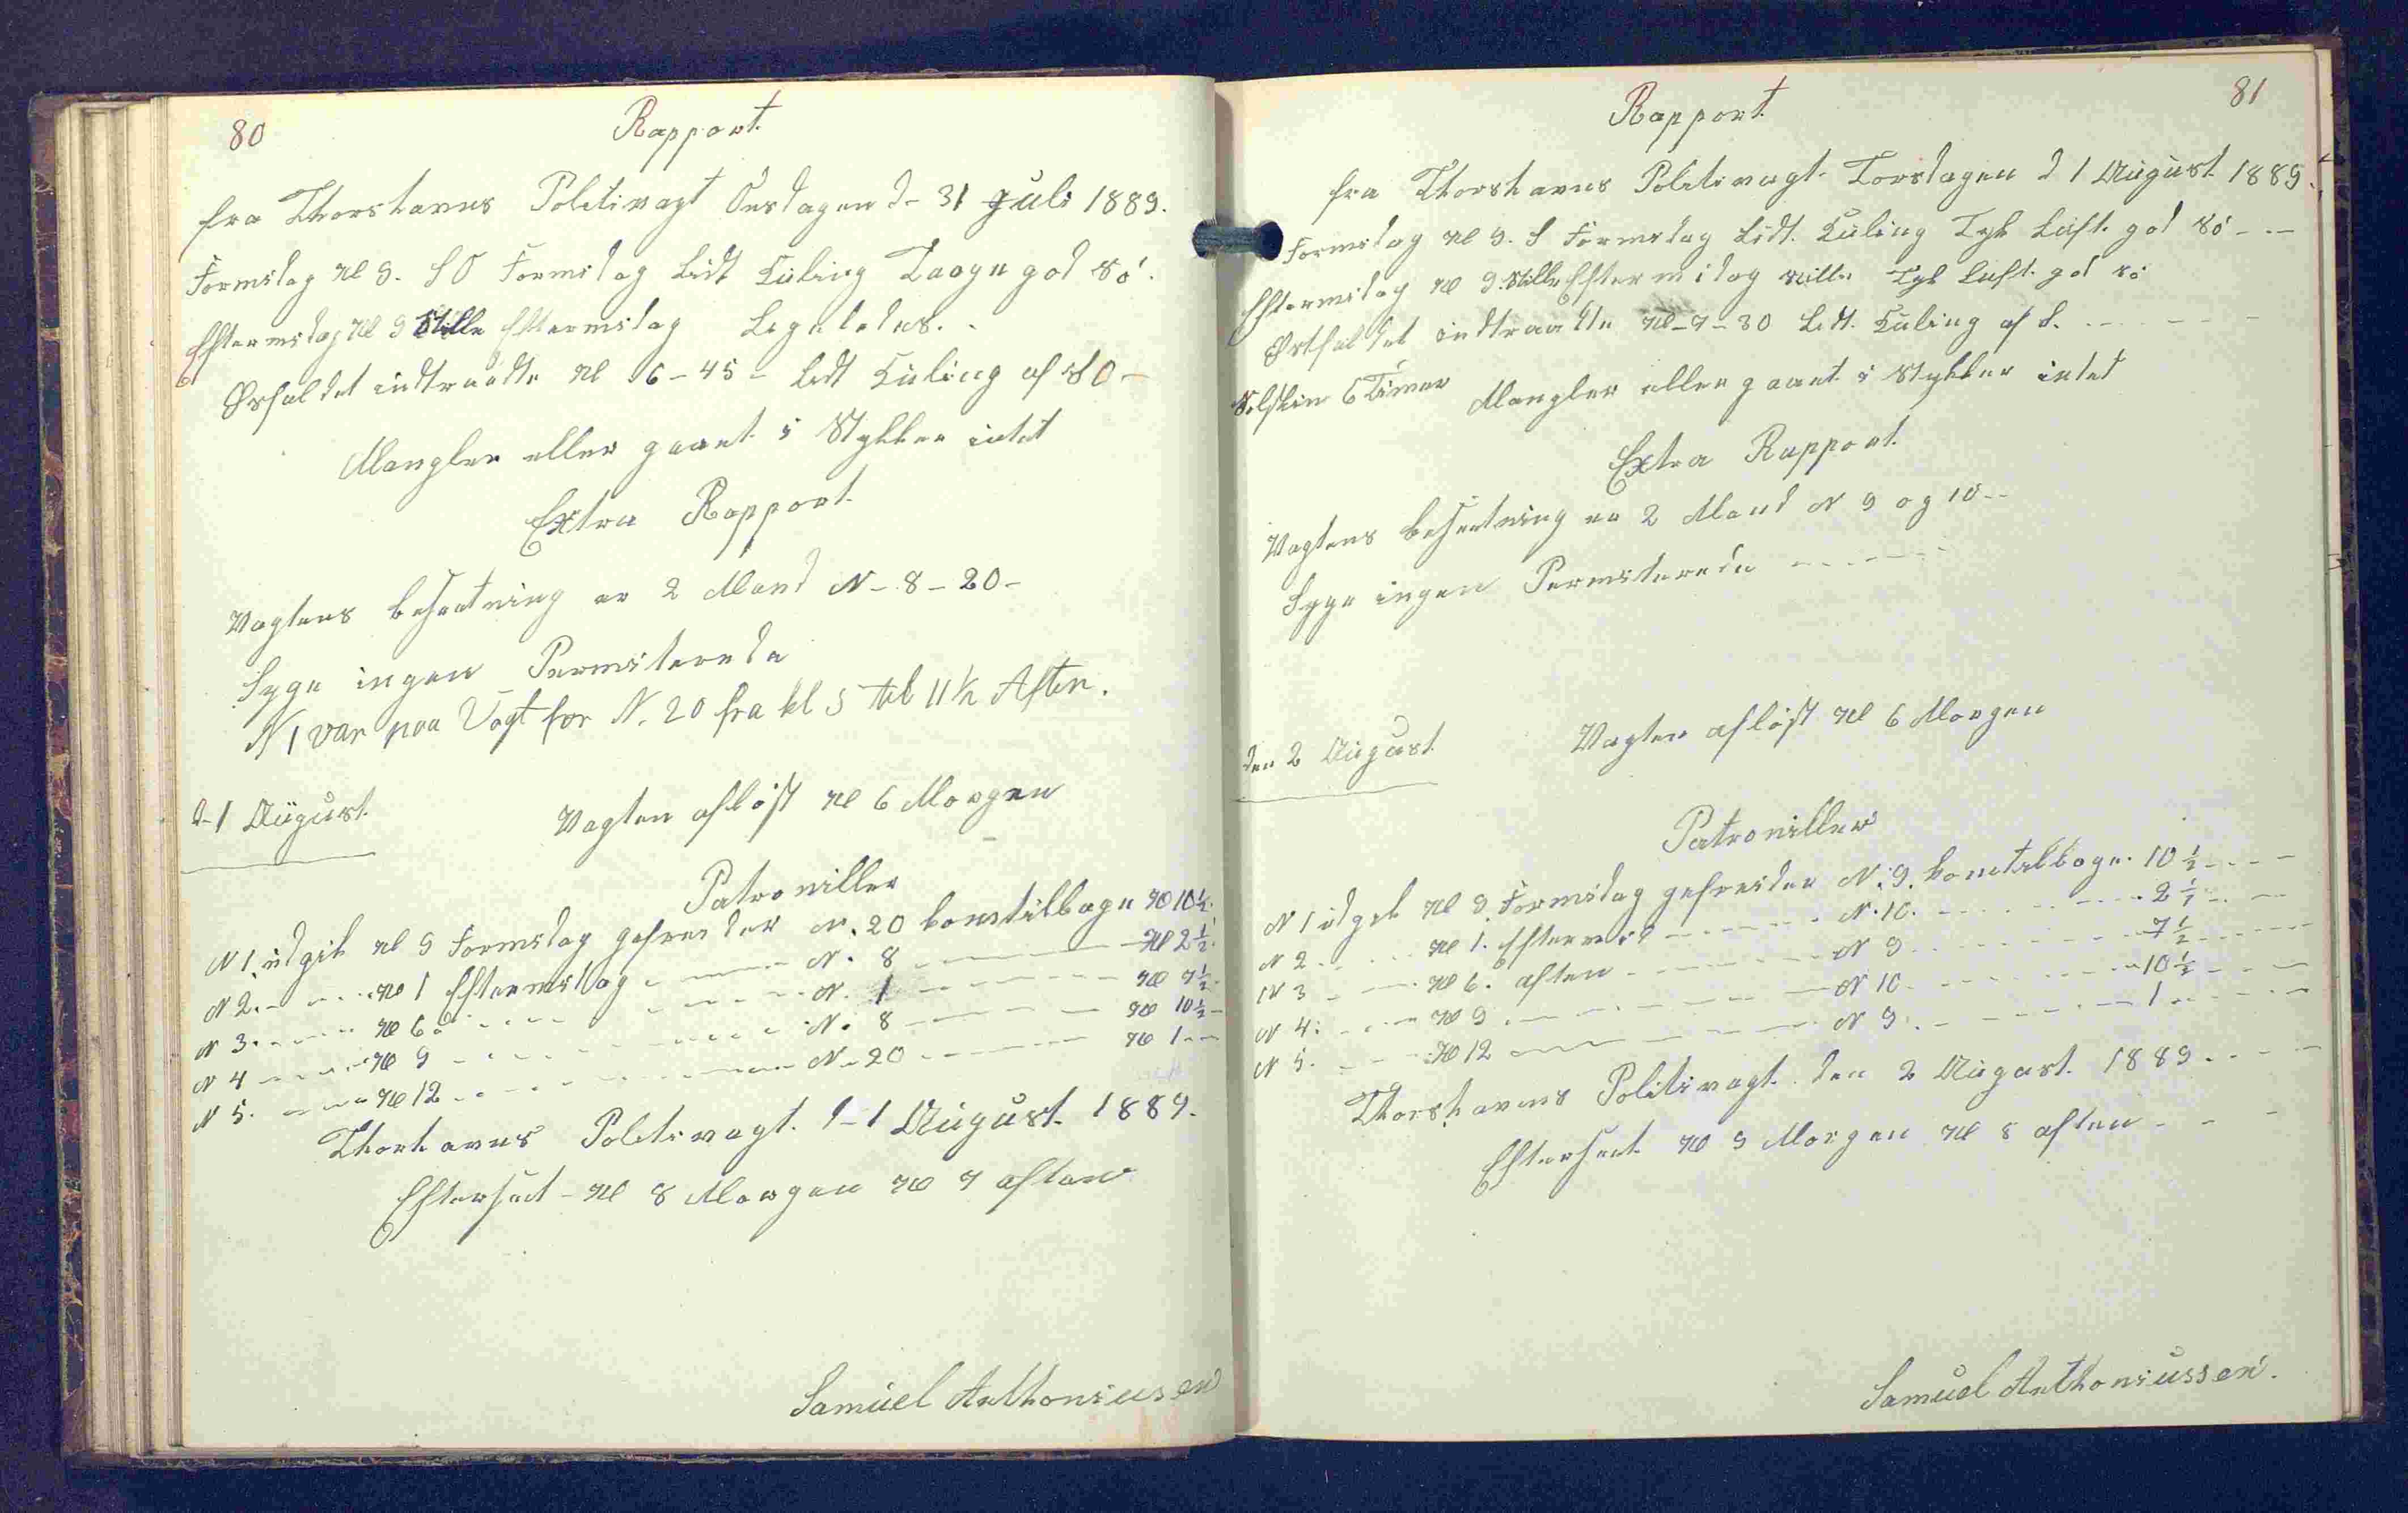 80
Rapport.
fra Thorshavns Politivagt Onsdagen d- 31 Juli 1889.
Formidag Kl 9. S O Formidag Lidt Kuling Taage god Sö.
Eftermidag Kl 9 Stille Eftermidag Ligeledes. -
Østfaldet indtraadte Kl 6-45- Lidt Kuling af S O-
Mangler eller gaaet i Stykker intet
Extra Rapport.
Vagtens besætning er 2 Mand N-8-20-
Syge ingen Permiterede
N 1 var paa Vagt for N. 20 fra kl 5 til 11 1/2 Aften.
d-1 August. Vagten afløst Kl 6 Morgen
Patroniller
N 1 udgik Kl 9 Formidag gefreider N. 20 komtilbage Kl 10 1/2.
N 2. - - - Kl 1 Eftermidag - - - N. 8 - - - Kl 2 1/2.
N 3. - - - Kl 6 - - - N. 1 - - - Kl 7 1/2.
N 4 - - - Kl 9 - - - N. 8 - - - Kl 10 1/2 -
N 5. - - - Kl 12 - - - N - 20 - - - Kl 1 - -
Thorhavns Politivagt. d-1 August. 1889.
Efterset - Kl 8 Morgen Kl 7 aften
Samuel Anthoniusen
81
Rapport.
fra Thorshavns Politivagt- Torsdagen d 1 August 1889.
Formidag Kl 9. S Formidag Lidt. Kuling Tyk Luft. god Sö - . -
Eftermidag Kl 9. Stille Eftermidag Stille Tyk Luft. god Sö
Østfaldet indtraadte Kl-7-30 Lidt. Kuling af S. - - - -
Solskin 6 Timer Mangler eller gaaet i Stykker intet
Extra Rapport.
Vagtens besætning er 2 Mand N 9 og 10 - -
Syge ingen Permiterede - - - -
den 2 August. Vagten afløst Kl 6 Morgen
Patroniller
N 1 udgik Kl 9. Formidag gefreider N. 9. komtilbage. 10 1/2 - - -
N 2. - - - Kl 1. Eftermid - - - N. 10. - - - 2 1/2 - -
N 3 - - - Kl 6. aften - - - N 9 - - - 7 1/2 - - -
N 4. - - - Kl 9 - - - N 10 - - - 10 1/2 - - -
N 5. - - - Kl 12 - - - N 9. - - - 1 - - -
Thorshavns Politivagt. den 2 August. 1889. - - -
Efterset. Kl 9 Morgen Kl 8 aften - - -
Samuel Anthoniussen.